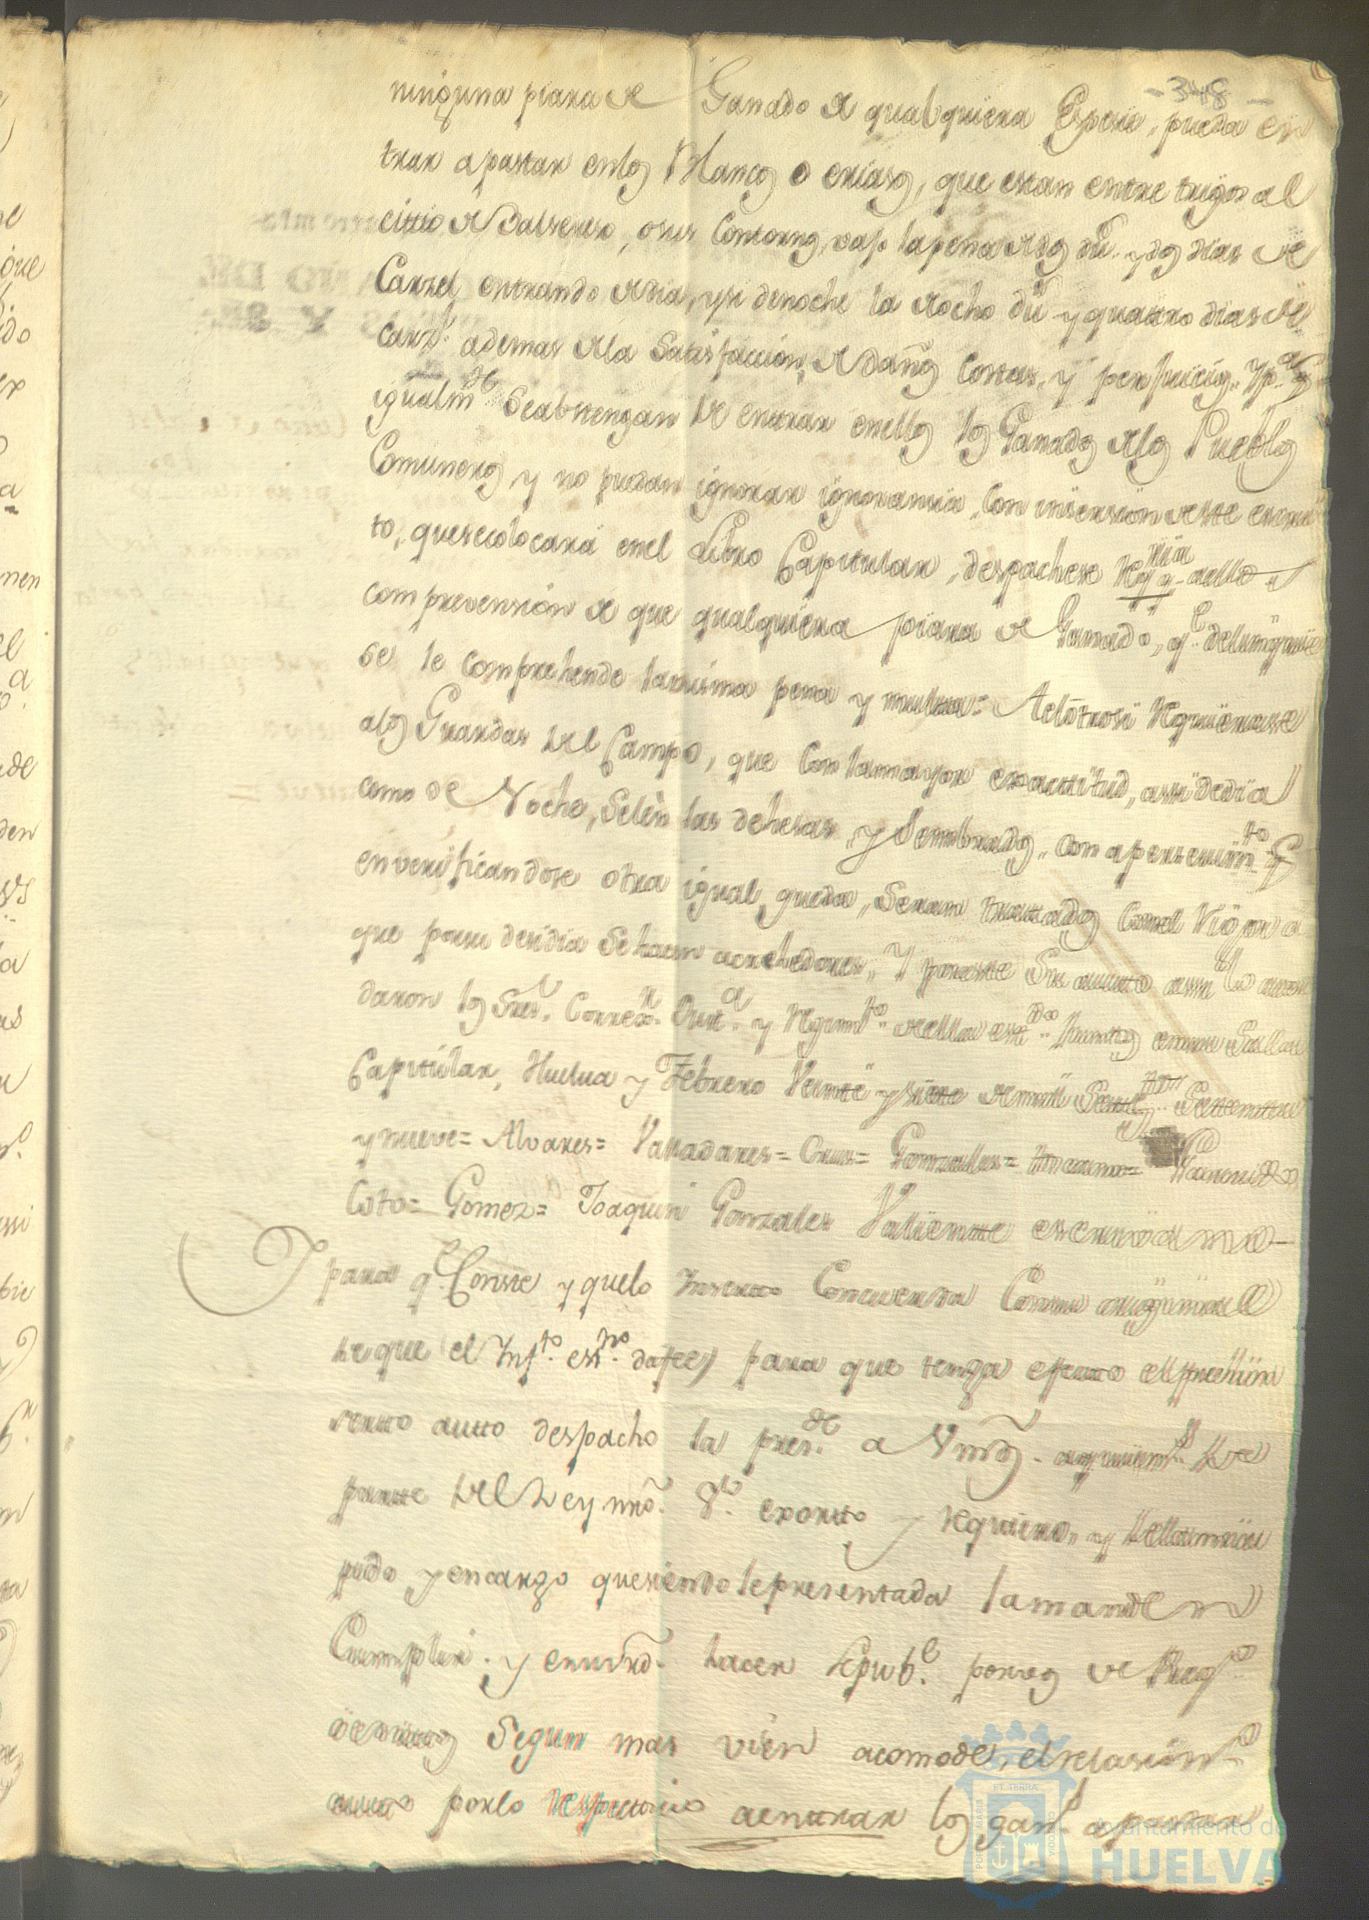 -348-
ninguna piara de Ganado de qualquiera Espesie, pueda en
trar apastar enlos Mancos o eriasos, que estan entre trigos al
cittio de Valsequo, o sus Contornos, vajo lapena de dos du.s y dos dias de
Carsel entrando de dia, y si denoche la de ocho du.s y quattro dias de
Carz.l ademas de la Satisfaccion, de daños Costas, y perjuicios, Yp.a q
igualm.te Seabstengan de entrar enellos los Ganados de los Pueblos
Comuneros y no puedan ignorar ignoransia, Con insersion de este escri
to, quesecolocará enel Libro Capitular, despachese Reqq.ria aello
comprevension de que qualquiera piara de Ganado, q.e delinquie
se le comprehende lamisma pena y multa= Aelotrosi Requierasse
alos Guardas del Campo, que Con lamayor exactitud, assi dedia
como de Noche, Selen las dehesas, y Sembrados, con apersevim.to q
enverificandose otra igual queda, Seran trattados Comel Rigor a
que por su desidia Sehacen acrehedores, Y poreste Su autto assi lo acor
daron los Sres. Correx.r Just.a y Regim.to de ella est.do Juntos en su Sala
Capitular, Huelva y Febrero Veinte y siete de mill Settes. Settentta
y nueve= Alvares= Valladares= Cruz= Gonzales=
Coto= Gomez= Joaquin Gonzales Valiente escrivano
Y para q.e Conste y quelo Inserto Concuerda Con su original
de que el Inf.to ess.no dafee) para que tenga efecto elprein
serto autto despacho la pres.te a Vmds. aquienes de
parte del Rey nro. S.r exorto y requiero, y dela mia
pido y encargo quesiendolepresentada lamanden
Cumplir. y ensuvrd. hacer Sepub.e porvos de Preg.o
Segun mas vien acomode, elrelasion.do
autto porlo respectivo aentrar los gan.s apastar
Ayuntamiento de
HUELVA